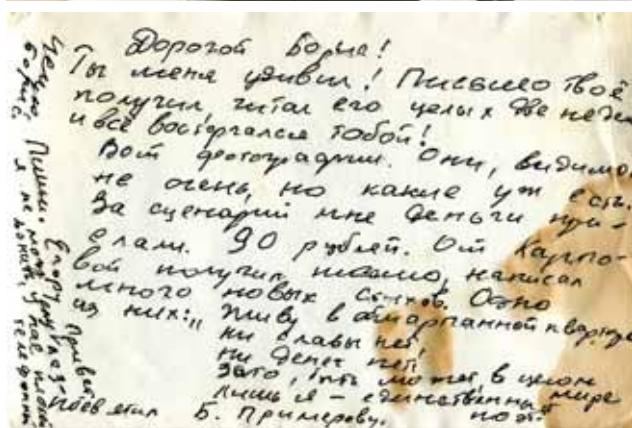 Дорогой Борис!
Ты меня удивил! Письмо твоё
получил читал его целых две недели
и всё восторгался тобой!
Вот фотографии. Они, видимо,
не очень, но какие уж есть.
За сценарий мне деньги при-
слали. 90 рублей. От Карпо-
вой получил письмо, написал
много новых стихов. Одно
из них: „Живу в квартире
ни славы нет
ни денег нет!
Зато, быть может, в целом мире
лишь я – единственный поэт."
Посвятил Б. Примерову.
Пиши. привет
Борис, я не могу
телефоны